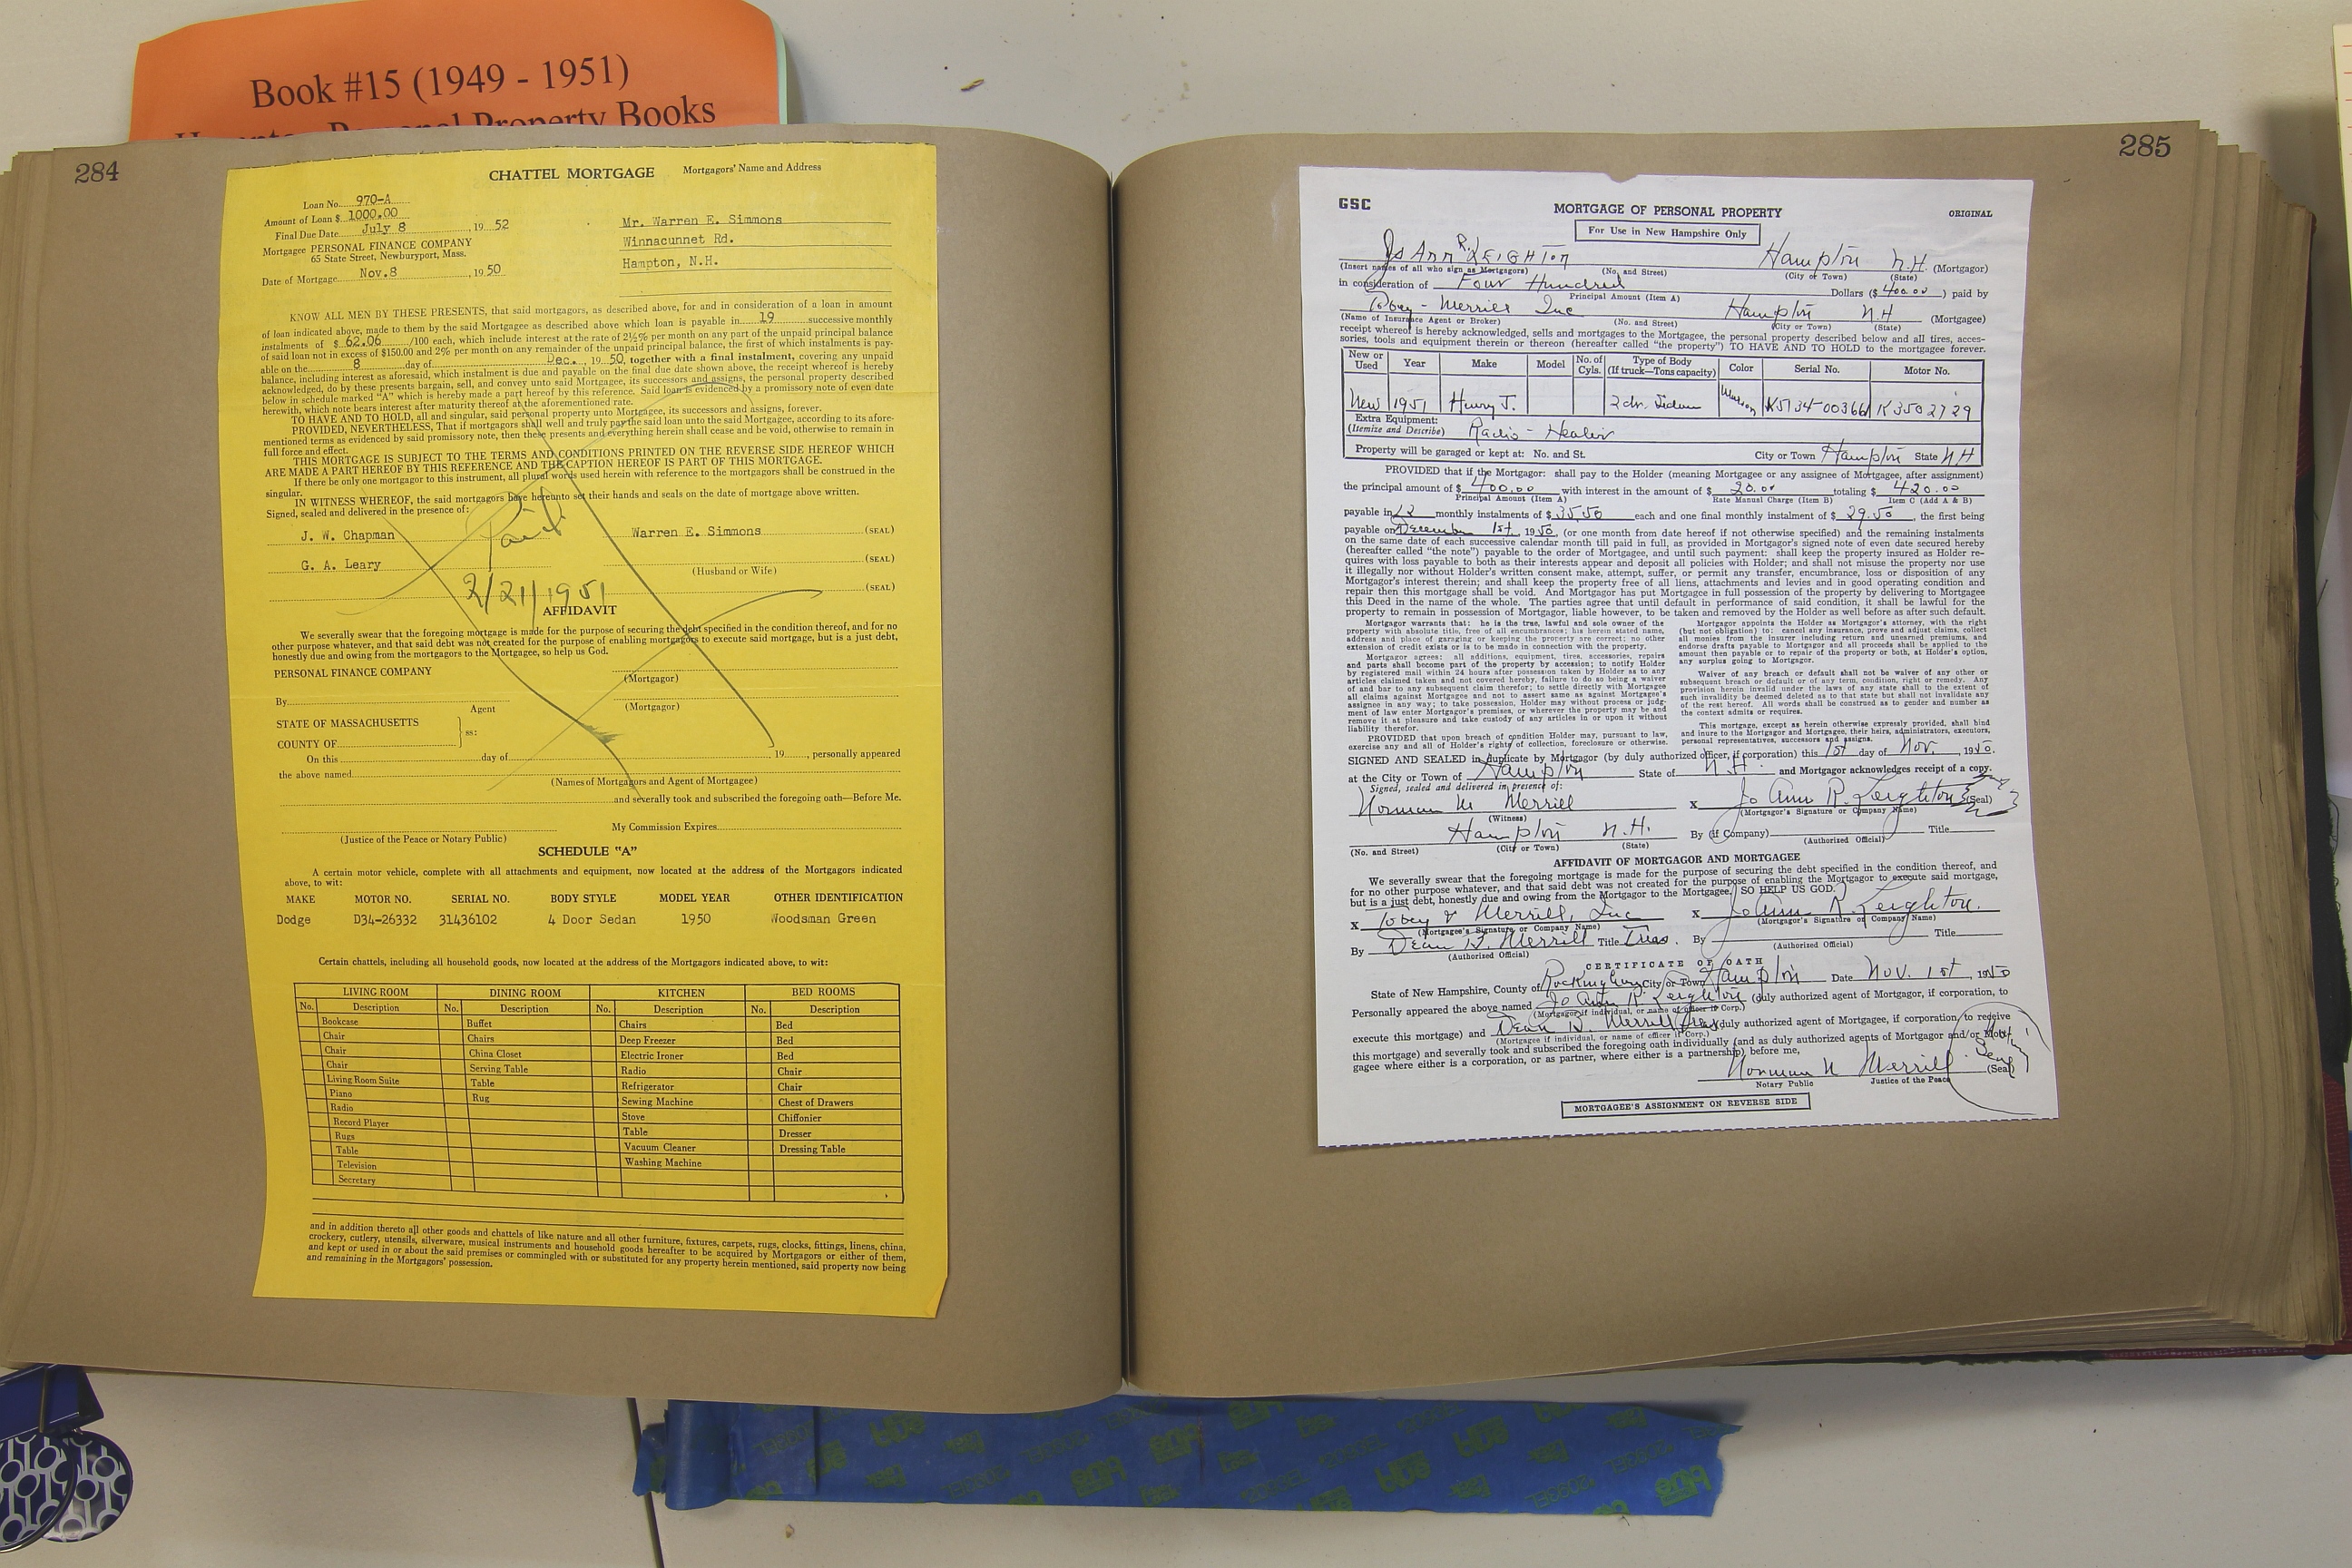 Book #15 (1949 - 1951)
Personal Property Books
284
CHATTEL MORTGAGE Mortgagors' Name and Address
Loan No. 970-A
Amount of Loan $ 1000.00
Final Due Date July 8, 19 52
Mortgagee PERSONAL FINANCE COMPANY
65 State Street, Newburyport, Mass.
Date of Mortgage Nov.8, 19 50
Mr. Warren E. Simmons
Winnacunnet Rd.
Hampton, N.H.
KNOW ALL MEN BY THESE PRESENTS, that said mortgagors, as described above, for and in consideration of a loan in amount
of loan indicated above, made to them by the said Mortgagee as described above which loan is payable in 19 successive monthly
instalments of $ 62.06 /100 each, which include interest at the rate of 2½% per month on any part of the unpaid principal balance
of said loan not in excess of $150.00 and 2% per month on any remainder of the unpaid principal balance, the first of which instalments is pay-
able on the 8 day of Dec. 19 50, together with a final instalment, covering any unpaid
balance, including interest as aforesaid, which instalment is due and payable on the final due date shown above, the receipt whereof is hereby
acknowledged, do by these presents bargain, sell, and convey unto said Mortgagee, its successors and assigns, the personal property described
below in schedule marked "A" which is hereby made a part hereof by this reference. Said loan is evidenced by a promissory note of even date
herewith, which note bears interest after maturity thereof at the aforementioned rate.
TO HAVE AND TO HOLD, all and singular, said personal property unto Mortgagee, its successors and assigns, forever.
PROVIDED, NEVERTHELESS, That if mortgagors shall well and truly pay the said loan unto the said Mortgagee, according to its afore-
mentioned terms as evidenced by said promissory note, then these presents and everything herein shall cease and be void, otherwise to remain in
full force and effect.
THIS MORTGAGE IS SUBJECT TO THE TERMS AND CONDITIONS PRINTED ON THE REVERSE SIDE HEREOF WHICH
ARE MADE A PART HEREOF BY THIS REFERENCE AND THE CAPTION HEREOF IS PART OF THIS MORTGAGE.
If there be only one mortgagor to this instrument, all plural words used herein with reference to the mortgagors shall be construed in the
singular.
IN WITNESS WHEREOF, the said mortgagors have hereunto set their hands and seals on the date of mortgage above written.
Signed, sealed and delivered in the presence of:
Paid
J. W. Chapman Warren E. Simmons (SEAL)
G. A. Leary (SEAL)
(Husband or Wife)
2/21/1951 (SEAL)
AFFIDAVIT
We severally swear that the foregoing mortgage is made for the purpose of securing the debt specified in the condition thereof, and for no
other purpose whatever, and that said debt was not created for the purpose of enabling mortgagors to execute said mortgage, but is a just debt,
honestly due and owing from the mortgagors to the Mortgagee, so help us God.
PERSONAL FINANCE COMPANY
(Mortgagor)
By
Agent (Mortgagor)
STATE OF MASSACHUSETTS
ss:
COUNTY OF
On this day of 19, personally appeared
the above named
(Names of Mortgagors and Agent of Mortgagee)
and severally took and subscribed the foregoing oath—Before Me.
My Commission Expires
(Justice of the Peace or Notary Public)
SCHEDULE "A"
A certain motor vehicle, complete with all attachments and equipment, now located at the address of the Mortgagors indicated
above, to wit:
MAKE MOTOR NO. SERIAL NO. BODY STYLE MODEL YEAR OTHER IDENTIFICATION
Dodge D34-26332 31436102 4 Door Sedan 1950 Woodsman Green
Certain chattels, including all household goods, now located at the address of the Mortgagors indicated above, to wit:
LIVING ROOM DINING ROOM KITCHEN BED ROOMS
No. Description No. Description No. Description No. Description
Bookcase Buffet Chairs Bed
Chair Chairs Deep Freezer Bed
Chair China Closet Electric Ironer Bed
Chair Serving Table Radio Chair
Living Room Suite Table Refrigerator Chair
Piano Rug Sewing Machine Chest of Drawers
Radio Stove Chiffonier
Record Player Table Dresser
Rugs Vacuum Cleaner Dressing Table
Table Washing Machine
Television
Secretary
and in addition thereto all other goods and chattels of like nature and all other furniture, fixtures, carpets, rugs, clocks, fittings, linens, china,
crockery, cutlery, utensils, silverware, musical instruments and household goods hereafter to be acquired by Mortgagors or either of them,
and kept or used in or about the said premises or commingled with or substituted for any property herein mentioned, said property now being
and remaining in the Mortgagors' possession.
285
GSC MORTGAGE OF PERSONAL PROPERTY ORIGINAL
For Use in New Hampshire Only
Jo Ann R. LEIGHTON Hampton N.H. (Mortgagor)
(Insert names of all who sign as Mortgagors) (No. and Street) (City or Town) (State)
in consideration of Four Hundred Dollars ($ 400.00) paid by
Principal Amount (Item A)
Tobey - Merrill Inc Hampton N.H (Mortgagee)
(Name of Insurance Agent or Broker) (No. and Street) (City or Town) (State)
receipt whereof is hereby acknowledged, sells and mortgages to the Mortgagee, the personal property described below and all tires, acces-
sories, tools and equipment therein or thereon (hereafter called "the property") TO HAVE AND TO HOLD to the mortgagee forever.
New or Used Year Make Model No. of Cyls. Type of Body (If truck—Tons capacity) Color Serial No. Motor No.
New 1951 Henry J. 2 dr. Sedan Maroon K5134-003661 K3502729
Extra Equipment:
(Itemize and Describe) Radio - Heater
Property will be garaged or kept at: No. and St. City or Town Hampton State NH
PROVIDED that if the Mortgagor: shall pay to the Holder (meaning Mortgagee or any assignee of Mortgagee, after assignment)
the principal amount of $ 400.00 with interest in the amount of $ 20.00 totaling $ 420.00
Principal Amount (Item A) Rate Manual Charge (Item B) Item C (Add A & B)
payable in 12 monthly instalments of $ 35.50 each and one final monthly instalment of $ 29.50, the first being
payable on December 1st. 1950 (or one month from date hereof if not otherwise specified) and the remaining instalments
on the same date of each successive calendar month till paid in full, as provided in Mortgagor's signed note of even date secured hereby
(hereafter called "the note") payable to the order of Mortgagee, and until such payment: shall keep the property insured as Holder re-
quires with loss payable to both as their interests appear and deposit all policies with Holder; and shall not misuse the property nor use
it illegally nor without Holder's written consent make, attempt, suffer, or permit any transfer, encumbrance, loss or disposition of any
Mortgagor's interest therein; and shall keep the property free of all liens, attachments and levies and in good operating condition and
repair then this mortgage shall be void. And Mortgagor has put Mortgagee in full possession of the property by delivering to Mortgagee
this Deed in the name of the whole. The parties agree that until default in performance of said condition, it shall be lawful for the
property to remain in possession of Mortgagor, liable however, to be taken and removed by the Holder as well before as after such default.
Mortgagor warrants that: he is the true, lawful and sole owner of the
property with absolute title, free of all encumbrances; his herein stated name,
address and place of garaging or keeping the property are correct; no other
extension of credit exists or is to be made in connection with the property.
Mortgagor agrees: all additions, equipment, tires, accessories, repairs
and parts shall become part of the property by accession; to notify Holder
by registered mail within 24 hours after possession taken by Holder as to any
articles claimed taken and not covered hereby, failure to do so being a waiver
of and bar to any subsequent claim therefor; to settle directly with Mortgagee
all claims against Mortgagee and not to assert same as against Mortgagee's
assignee in any way; to take possession, Holder may without process or judg-
ment of law enter Mortgagor's premises, or wherever the property may be and
remove it at pleasure and take custody of any articles in or upon it without
liability therefor.
PROVIDED that upon breach of condition Holder may, pursuant to law,
exercise any and all of Holder's rights of collection, foreclosure or otherwise.
Mortgagor appoints the Holder as Mortgagor's attorney, with the right
(but not obligation) to: cancel any insurance, prove and adjust claims, collect
all monies from the insurer including return and unearned premiums, and
endorse drafts payable to Mortgagor and all proceeds shall be applied to the
amount then payable or to repair of the property or both, at Holder's option,
any surplus going to Mortgagor.
Waiver of any breach or default shall not be waiver of any other or
subsequent breach or default or of any term, condition, right or remedy. Any
provision herein invalid under the laws of any state shall to the extent of
such invalidity be deemed deleted as to that state but shall not invalidate any
of the rest hereof. All words shall be construed as to gender and number as
the context admits or requires.
This mortgage, except as herein otherwise expressly provided, shall bind
and inure to the Mortgagor and Mortgagee, their heirs, administrators, executors,
personal representatives, successors and assigns.
SIGNED AND SEALED in duplicate by Mortgagor (by duly authorized officer, if corporation) this 1st day of Nov., 1950.
at the City or Town of Hampton State of N.H. and Mortgagor acknowledges receipt of a copy.
Signed, sealed and delivered in presence of:
Norman M Merrill X Jo Ann R. Leighton (Seal)
(Witness) (Mortgagor's Signature or Company Name)
Hampton N.H. By (if Company) Title
(No. and Street) (City or Town) (State) (Authorized Official)
AFFIDAVIT OF MORTGAGOR AND MORTGAGEE
We severally swear that the foregoing mortgage is made for the purpose of securing the debt specified in the condition thereof, and
for no other purpose whatever, and that said debt was not created for the purpose of enabling the Mortgagor to execute said mortgage,
but is a just debt, honestly due and owing from the Mortgagor to the Mortgagee. SO HELP US GOD.
X Tobey & Merrill, Inc X Jo Ann R. Leighton.
(Mortgagee's Signature or Company Name) (Mortgagor's Signature or Company Name)
By Dean B. Merrill Title Treas. By Title
(Authorized Official) (Authorized Official)
CERTIFICATE OF OATH
State of New Hampshire, County of Rockingham City or Town Hampton Date Nov. 1st, 1950
Personally appeared the above named Jo Ann R. Leighton (duly authorized agent of Mortgagor, if corporation, to
(Mortgagor if individual, or name of officer if Corp.)
execute this mortgage) and Dean B. Merrill Treas (duly authorized agent of Mortgagee, if corporation, to receive
(Mortgagee if individual, or name of officer if Corp.)
this mortgage) and severally took and subscribed the foregoing oath individually (and as duly authorized agents of Mortgagor and/or Mort-
gagee where either is a corporation, or as partner, where either is a partnership), before me,
Norman M Merrill (Seal)
Notary Public Justice of the Peace
MORTGAGEE'S ASSIGNMENT ON REVERSE SIDE